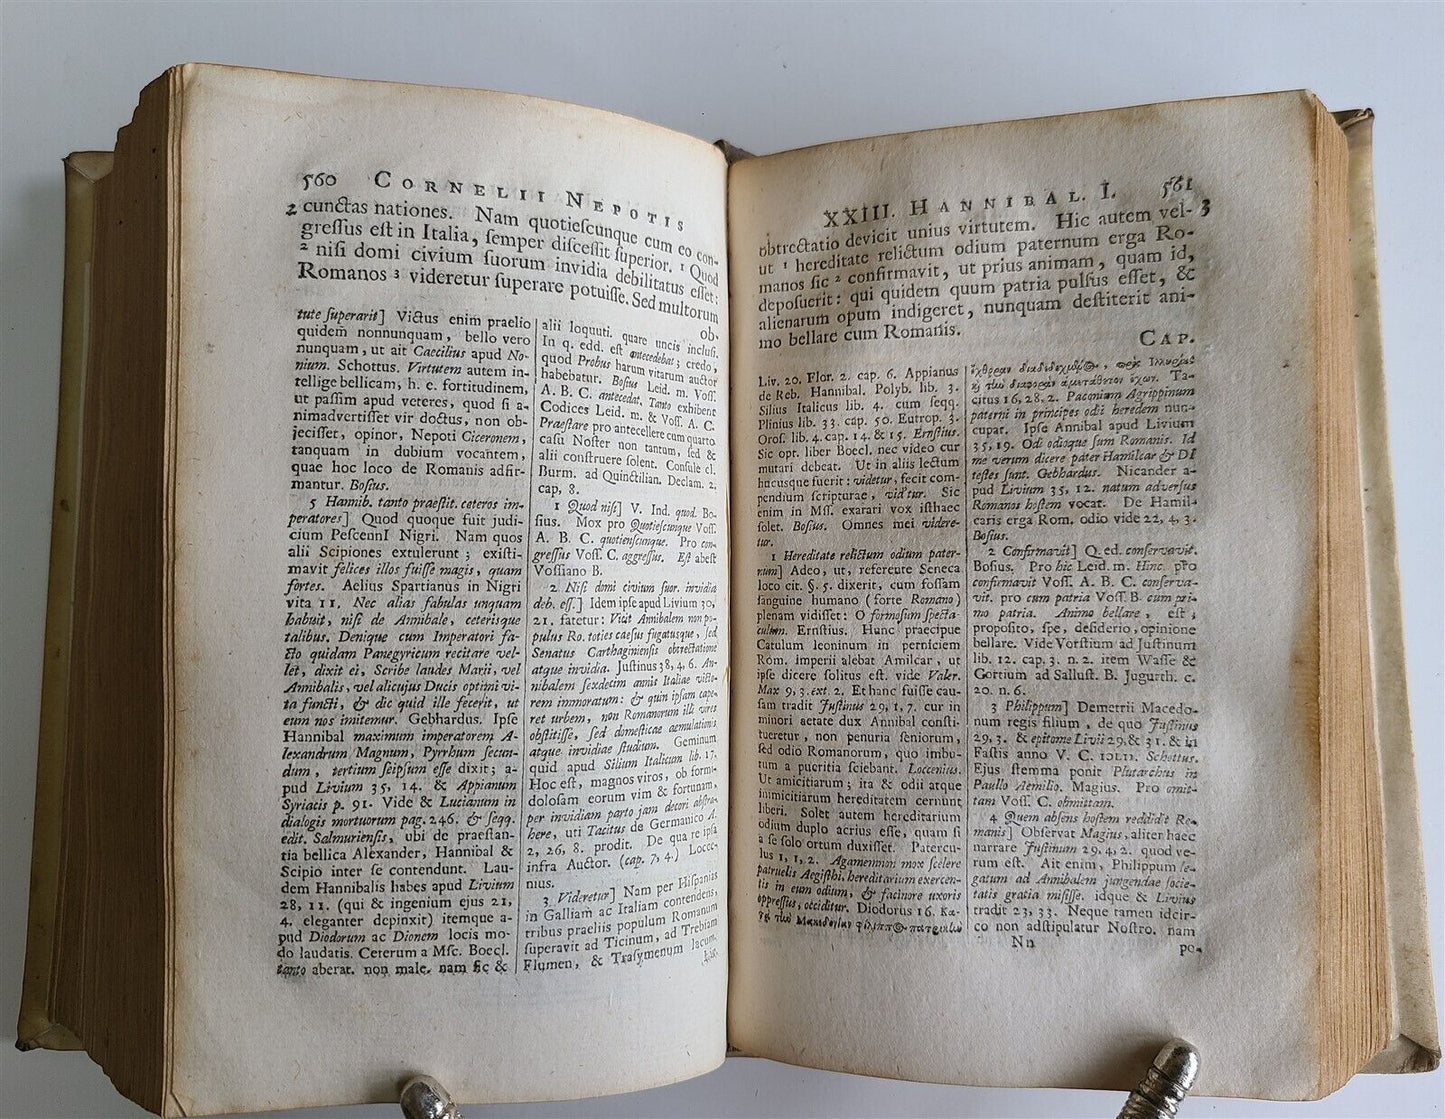 560 CORNELII NEPOTIS
2 cunctas nationes. Nam quotiescunque cum eo con-
gressus est in Italia, semper discessit superior. 1 Quod
2 nisi domi civium suorum invidia debilitatus esset:
Romanos 3 videretur superare potuisse. Sed multorum
ob-
tute superarit] Victus enim praelio
quidem nonnunquam, bello vero
nunquam, ut ait Caecilius apud No-
nium. Schottus. Virtutem autem in-
tellige bellicam, h. e. fortitudinem,
ut passim apud veteres, quod si a-
nimadvertisset vir doctus, non ob-
jecisset, opinor, Nepoti Ciceronem,
tanquam in dubium vocantem,
quae hoc loco de Romanis adfir-
mantur. Bosius.
5 Hannib. tanto praestit. ceteros im-
peratores] Quod quoque fuit judi-
cium PescennI Nigri. Nam quos
alii Scipiones extulerunt; existi-
mavit felices illos fuisse magis, quam
fortes. Aelius Spartianus in Nigri
vita 11. Nec alias fabulas unquam
habuit, nisi de Annibale, ceterisque
talibus. Denique cum Imperatori fa-
cto quidam Panegyricum recitare vel-
let, dixit ei, Scribe laudes Marii, vel
Annibalis, vel alicujus Ducis optimi vi-
ta functi, & dic quid ille fecerit, ut
eum nos imitemur. Gebhardus. Ipse
Hannibal maximum imperatorem A-
lexandrum Magnum, Pyrrhum secun-
dum, tertium seipsum esse dixit; a-
pud Livium 35, 14. & Appianum
Syriacis p. 91. Vide & Lucianum in
dialogis mortuorum pag. 246. & seqq.
edit. Salmuriensis, ubi de praestan-
tia bellica Alexander, Hannibal &
Scipio inter se contendunt. Lau-
dem Hannibalis habes apud Livium
28, 11. (qui & ingenium ejus 21,
4. eleganter depinxit) itemque a-
pud Diodorum ac Dionem locis mo-
do laudatis. Ceterum a Msc. Boecl.
tanto aberat. non male. nam sic &
alii loquuti. quare uncis inclusi.
In q. edd. est antecedebat; credo,
quod Probus harum vitarum auctor
habebatur. Bosius Leid. m. Voss.
A. B. C. antecedat. Tanto exhibent
Codices Leid. m. & Voss. A. C.
Praestare pro antecellere cum quarto
casu Noster non tantum, sed &
alii construere solent. Consule cl.
Burm. ad Quinctilian. Declam. 2.
cap, 8.
1 Quod nisi] V. Ind. quod. Bo-
sius. Mox pro Quotiescunque Voss.
A. B. C. quotienscunque. Pro con-
gressus Voss. C. aggressus. Est abest
Vossiano B.
2 Nisi domi civium suor. invidia
deb. ess.] Idem ipse apud Livium 30,
21. fatetur: Vicit Annibalem non po-
pulus Ro. toties caesus fugatusque, sed
Senatus Carthaginensis obtrectatione
atque invidia. Justinus 38, 4, 6. An-
nibalem sexdecim annis Italiae victo-
rem immoratum: & quin ipsam cape-
ret urbem, non Romanorum illi vires
obstitisse, sed domesticae aemulationis
atque invidiae studium. Geminum
quid apud Silium Italicum lib. 17.
Hoc est, magnos viros, ob formi-
dolosam eorum vim & fortunam,
per invidiam parto jam decori abstra-
here, uti Tacitus de Germanico A.
2, 26, 8. prodit. De qua re ipsa
infra Auctor. (cap. 7, 4.) Locce-
nius.
3 Videretur] Nam per Hispanias
in Galliam ac Italiam contendens,
tribus praeliis populum Romanum
superavit ad Ticinum, ad Trebiam
Flumen, & Trasymenum lacum,
XXIII. HANNIBAL. I. 561
obtrectatio devicit unius virtutem. Hic autem vel- 3
ut 1 hereditate relictum odium paternum erga Ro-
manos sic 2 confirmavit, ut prius animam, quam id,
deposuerit: qui quidem quum patria pulsus esset, &
alienarum opum indigeret, nunquam destiterit ani-
mo bellare cum Romanis.
CAP.
Liv. 20. Flor. 2. cap. 6. Appianus
de Reb. Hannibal. Polyb. lib. 3.
Silius Italicus lib. 4. cum seqq.
Plinius lib. 33. cap. 50. Eutrop. 3.
Oros. lib. 4. cap. 14. & 15. Ernstius.
Sic opt. liber Boecl. nec video cur
mutari debeat. Ut in aliis lectum
hucusque fuerit: videtur, fecit com-
pendium scripturae, vid'tur. Sic
enim in Mss. exarari vox isthaec
solet. Bosius. Omnes mei videre-
tur.
1 Hereditate relictum odium pater-
num] Adeo, ut, referente Seneca
loco cit. §. 5. dixerit, cum fossam
sanguine humano (forte Romano)
plenam vidisset: O formosum specta-
culum. Ernstius. Hunc praecipue
Catulum leoninum in perniciem
Rom. imperii alebat Amilcar, ut
ipse dicere solitus est. vide Valer.
Max 9, 3. ext. 2. Et hanc fuisse cau-
sam tradit Justinus 29, 1, 7. cur in
minori aetate dux Annibal consti-
tueretur, non penuria seniorum,
sed odio Romanorum, quo imbu-
tum a pueritia sciebant. Loccenius.
Ut amicitiarum; ita & odii atque
inimicitiarum hereditatem cernunt
liberi. Solet autem hereditarium
odium duplo acrius esse, quam si
a se solo ortum duxisset. Patercu-
lus 1, 1, 2. Agamemnon mox scelere
patruelis Aegisthi, hereditarium exercen-
tis in eum odium, & facinore uxoris
oppressus, occiditur. Diodorus 16. Κα-
citus 16, 28, 2. Paconium Agrippinum
paterni in principes odii heredem nun-
cupat. Ipse Annibal apud Livium
35, 19. Odi odioque sum Romanis. Id
me verum dicere pater Hamilcar & DI
testes sunt. Gebhardus. Nicander a-
pud Livium 35, 12. natum adversus
Romanos hostem vocat. De Hamil-
caris erga Rom. odio vide 22, 4, 3.
Bosius.
2 Confirmavit] Q. ed. conservavit.
Bosius. Pro hic Leid. m. Hinc. pro
confirmavit Voss. A. B. C. conserva-
vit. pro cum patria Voss. B cum pri-
mo patria. Animo bellare, est;
proposito, spe, desiderio, opinione
bellare. Vide Vorstium ad Justinum
lib. 12. cap. 3. n. 2. item Wasse &
Cortium ad Sallust. B. Jugurth. c.
20. n. 6.
3 Philippum] Demetrii Macedo-
num regis filium, de quo Justinus
29, 3. & epitome Livii 29. & 31. & in
Fastis anno V. C. IƆLII. Schottus.
Ejus stemma ponit Plutarchus in
Paullo Aemilio. Magius. Pro omit-
tam Voss. C. obmittam.
4 Quem absens hostem reddidit Ro-
manis] Observat Magius, aliter haec
narrare Justinum 29. 4, 2. quod ve-
rum est. Ait enim, Philippum le-
gatum ad Annibalem jungendae socie-
tatis gratia misisse. idque & Livius
tradit 23, 33. Neque tamen idcir-
co non adstipulatur Nostro. nam
Nn po-